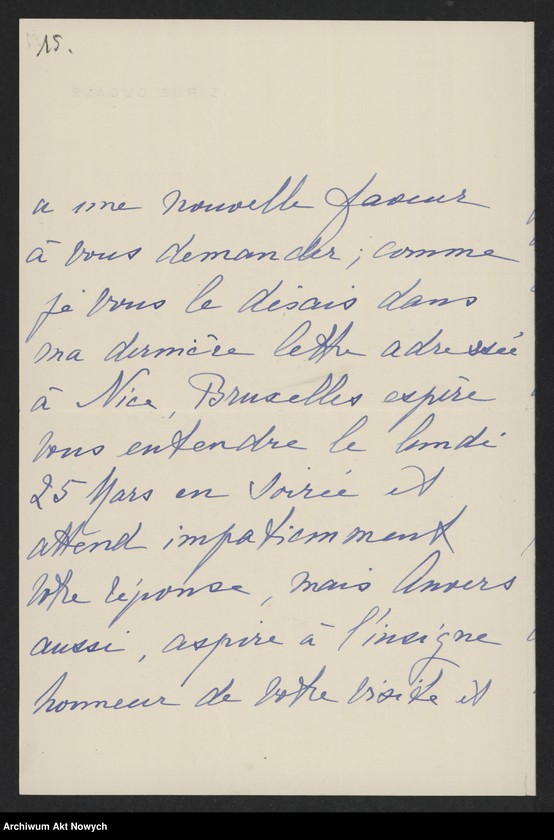 15.
a une nouvelle faveur
à vous demander ; comme
je vous le disais dans
ma dernière lettre adressée
à Nice, Bruxelles espère
vous entendre le lundi
25 Mars en soirée et
attend impatiemment
votre réponse, mais Anvers
aussi, aspire à l'insigne
honneur de votre visite et
Archiwum Akt Nowych